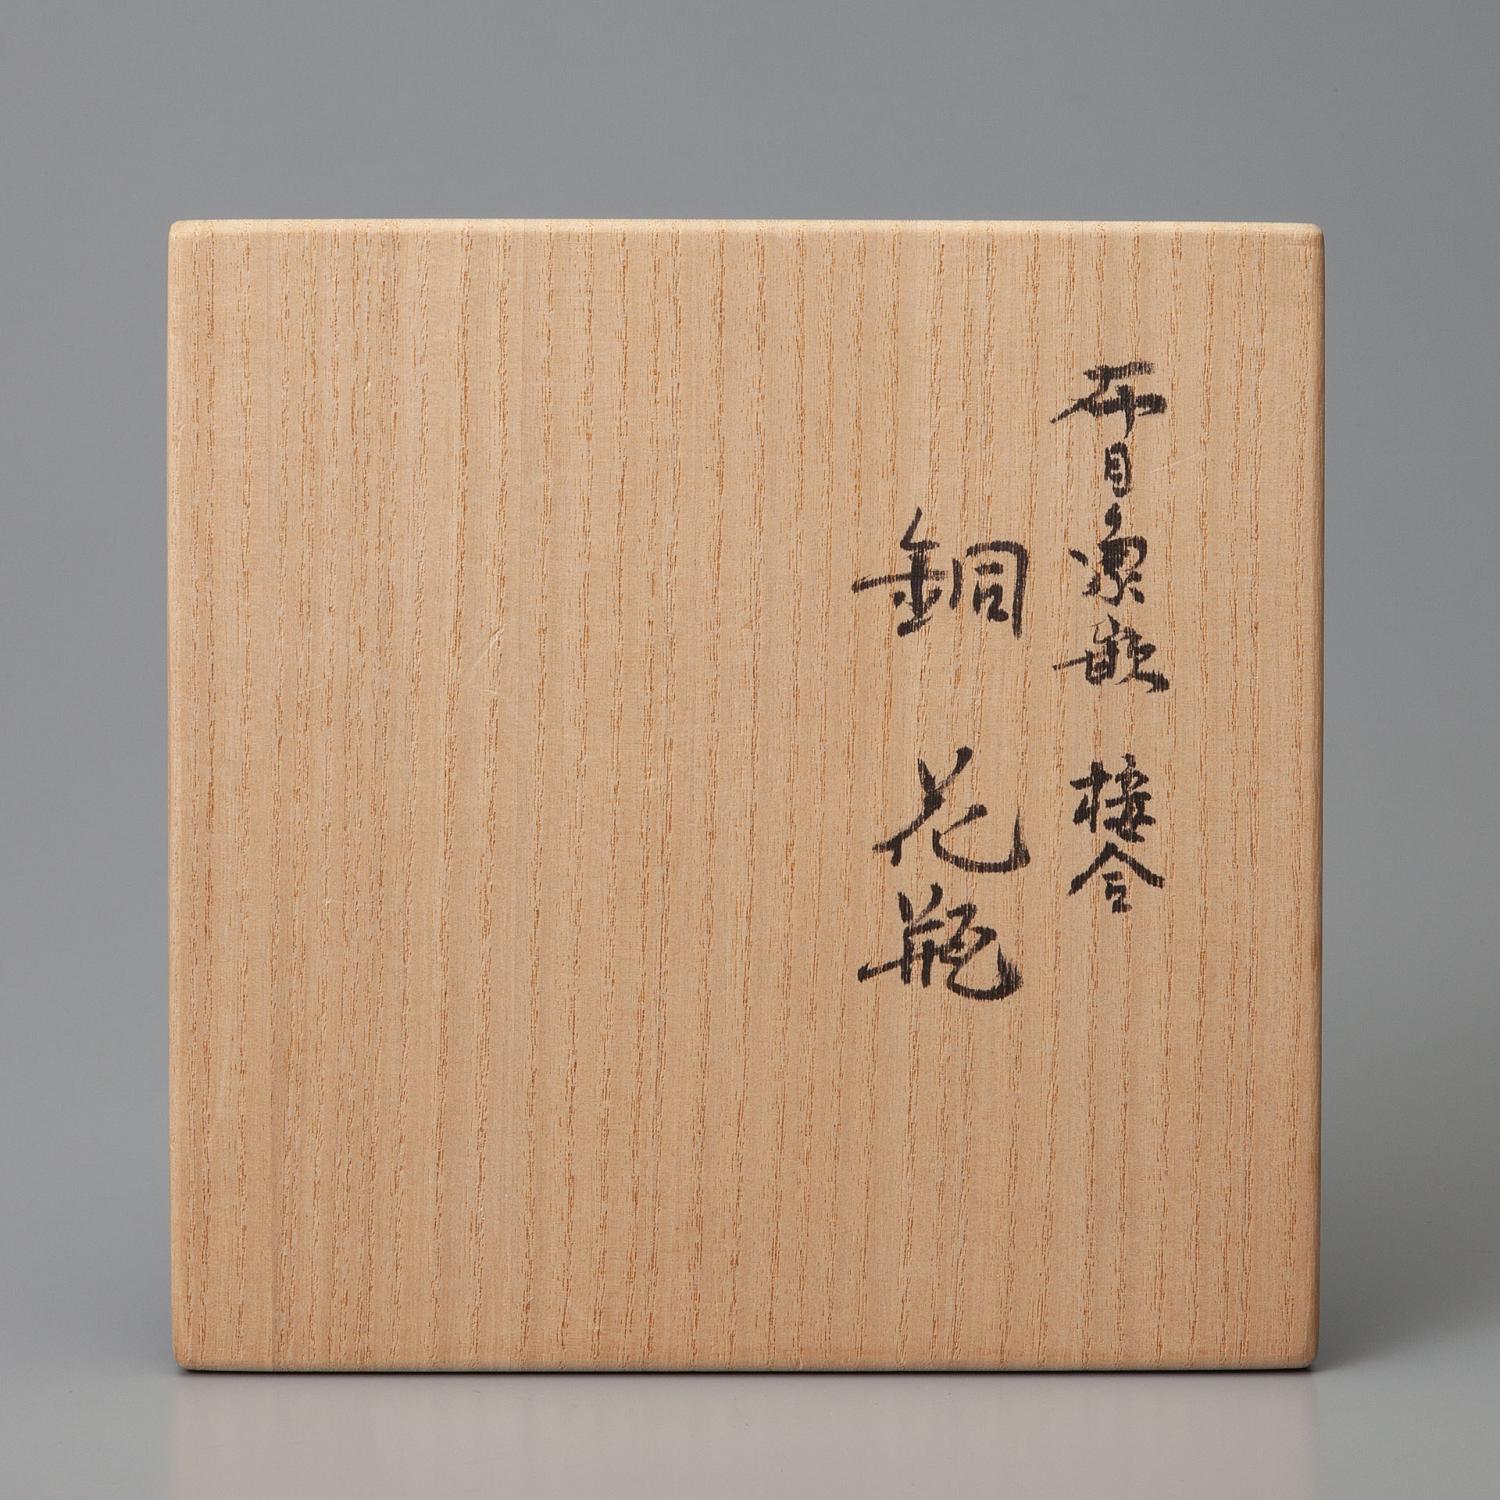 布目象嵌 接合
銅 花瓶